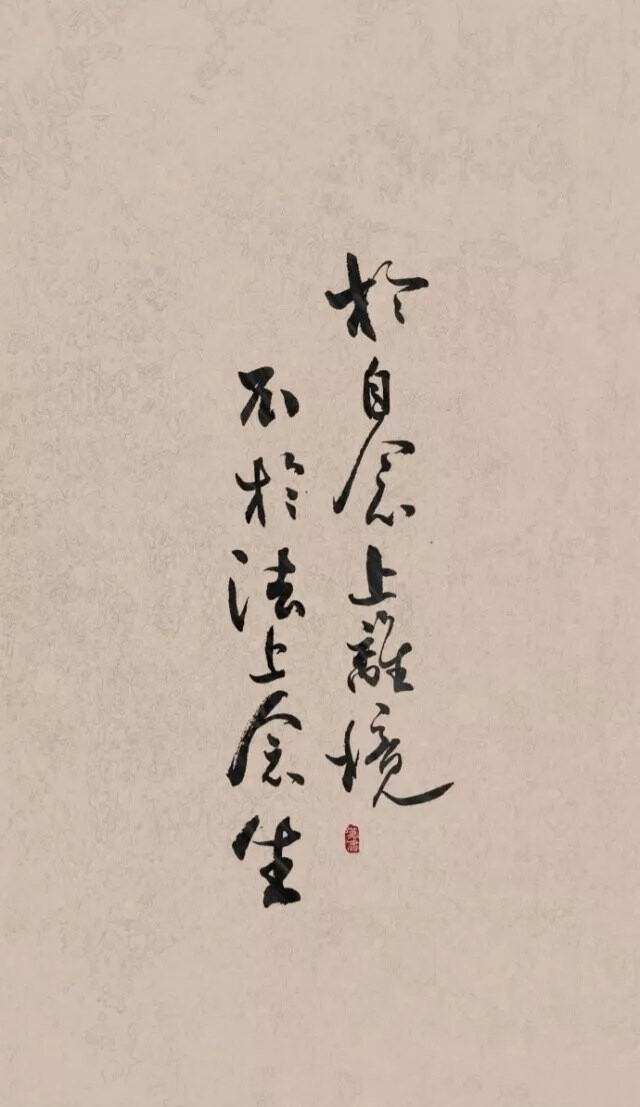 於自念上離境
不於法上念生